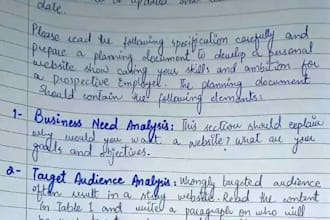 to be updated
date.
Please read the following specification carefully and
prepare a planning document to develop a personal
website show casing your skills and ambition for
a prospective Employee. The planning document
Should contain the following elements:
1- Business Need Analysis: This section should explain
why would you want a website? what are your
goals and objectives.
2- Target Audience Analysis: Wrongly targeted audience
often result in a website. Read the content
in Table 1 and write a paragraph on who will